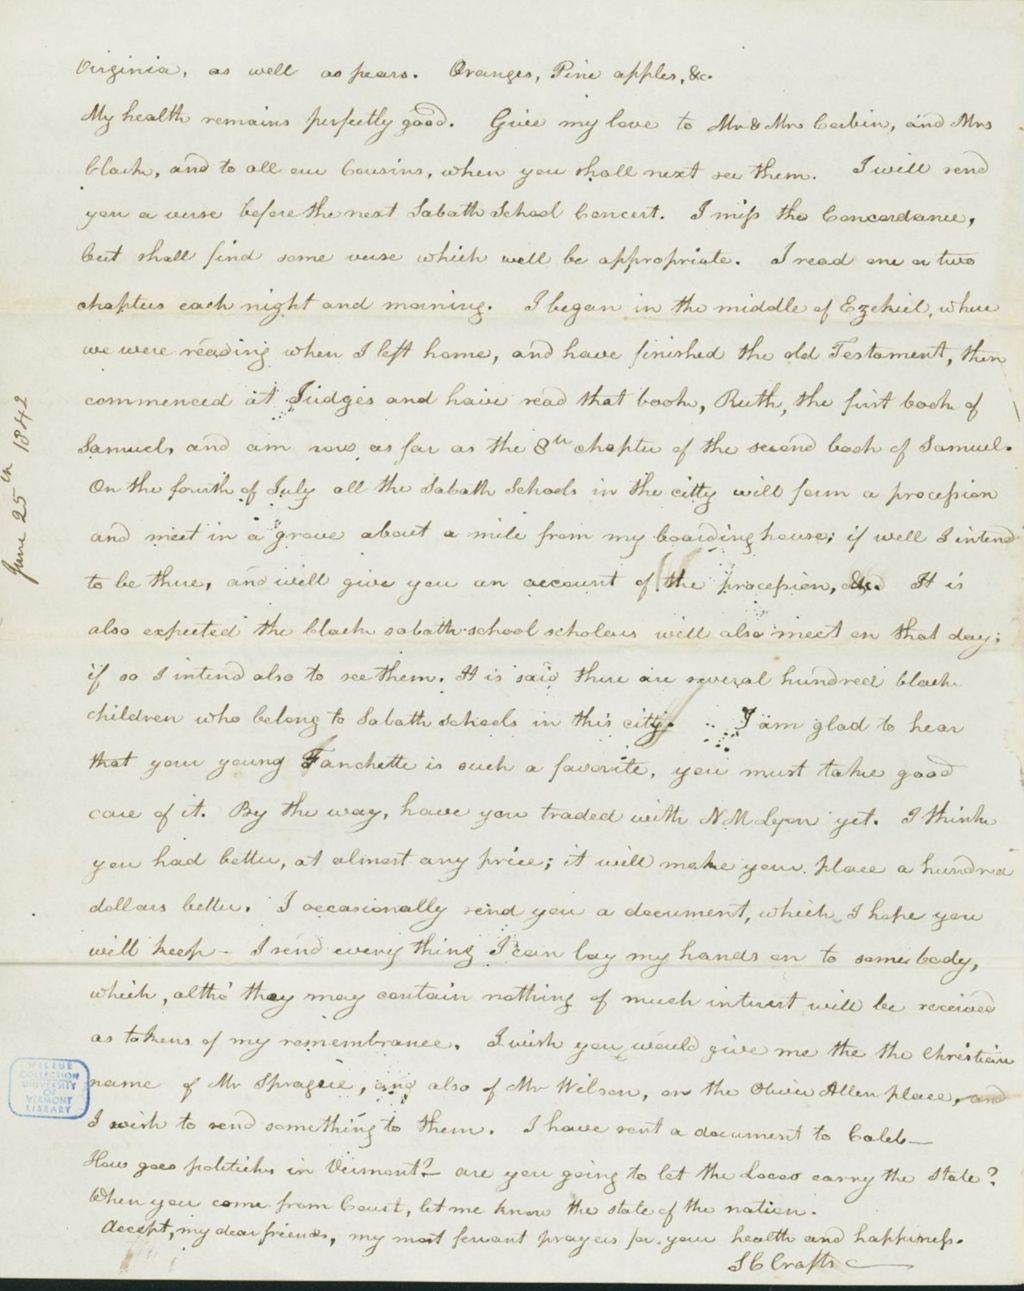 Virginia, as well as pears. Oranges, Pine apples, &c.
My health remains perfectly good. Give my love to Mr & Mrs Corbin, and Mrs
Clark, and to all our Cousins, when you shall next see them. I will send
you a verse before the next Sabath School Concert. I miss the Concordance,
but shall find some verse which will be appropriate. I read one or two
chapters each night and morning. I began in the middle of Ezekiel, where
we were reading when I left home, and have finished the old Testament, then
commenced at Judges and have read that book, Ruth, the first book of
Samuel, and am now as far as the 8th chapter of the second book of Samuel.
On the fourth of July all the Sabath Schools in the citty will form a procession
and meet in a grove about a mile from my boarding house; if well I intend
to be there, and will give you an account of the procession, &c. It is
also expected the black sabath-school scholars will also meet on that day;
if so I intend also to see them. It is said there are several hundred black
children who belong to Sabath schools in this city. I am glad to hear
that your young Fanchette is such a favorite, you must take good
care of it. By the way, have you traded with N M Lyon yet. I think
you had better, at almost any price; it will make your place a hundred
dollars better. I occasionally send you a document, which I hope you
will keep - I send every thing I can lay my hands on to some body,
which, altho' they may contain nothing of much interest will be received
as tokens of my remembrance. I wish you would give me the the Christian
name of Mr Sprague, and also of Mr Wilson, on the Oliver Allen place, and
I wish to send something to them. I have sent a document to Caleb—
How goes politicks in Vermont? - are you going to let the Locos carry the State?
When you come from Court, let me know the state of the nation.
Accept, my dear friends, my most fervant prayers for your health and happiness.
S C Crafts
June 25th 1842
WILBUR
COLLECTION
UNIVERSITY
OF
VERMONT
LIBRARY